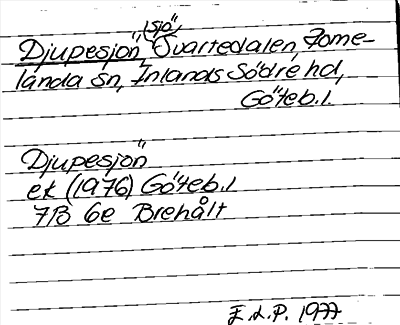 (sjö)
Djupesjön, Svartedalen, Rome-
landa sn, Inlands Södre hd,
Göteb.l.
Djupesjön
ek (1976) Göteb.l
7B 6e Brehålt
E.L.P. 1977